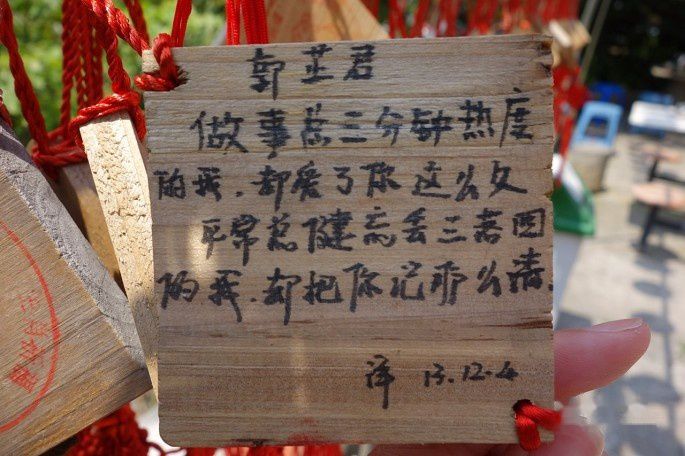 郭芷君
做事总三分钟热度
的我,却爱了你这么久
平常总健忘丢三落四
的我,却把你记那么清.
泽 13.12.4